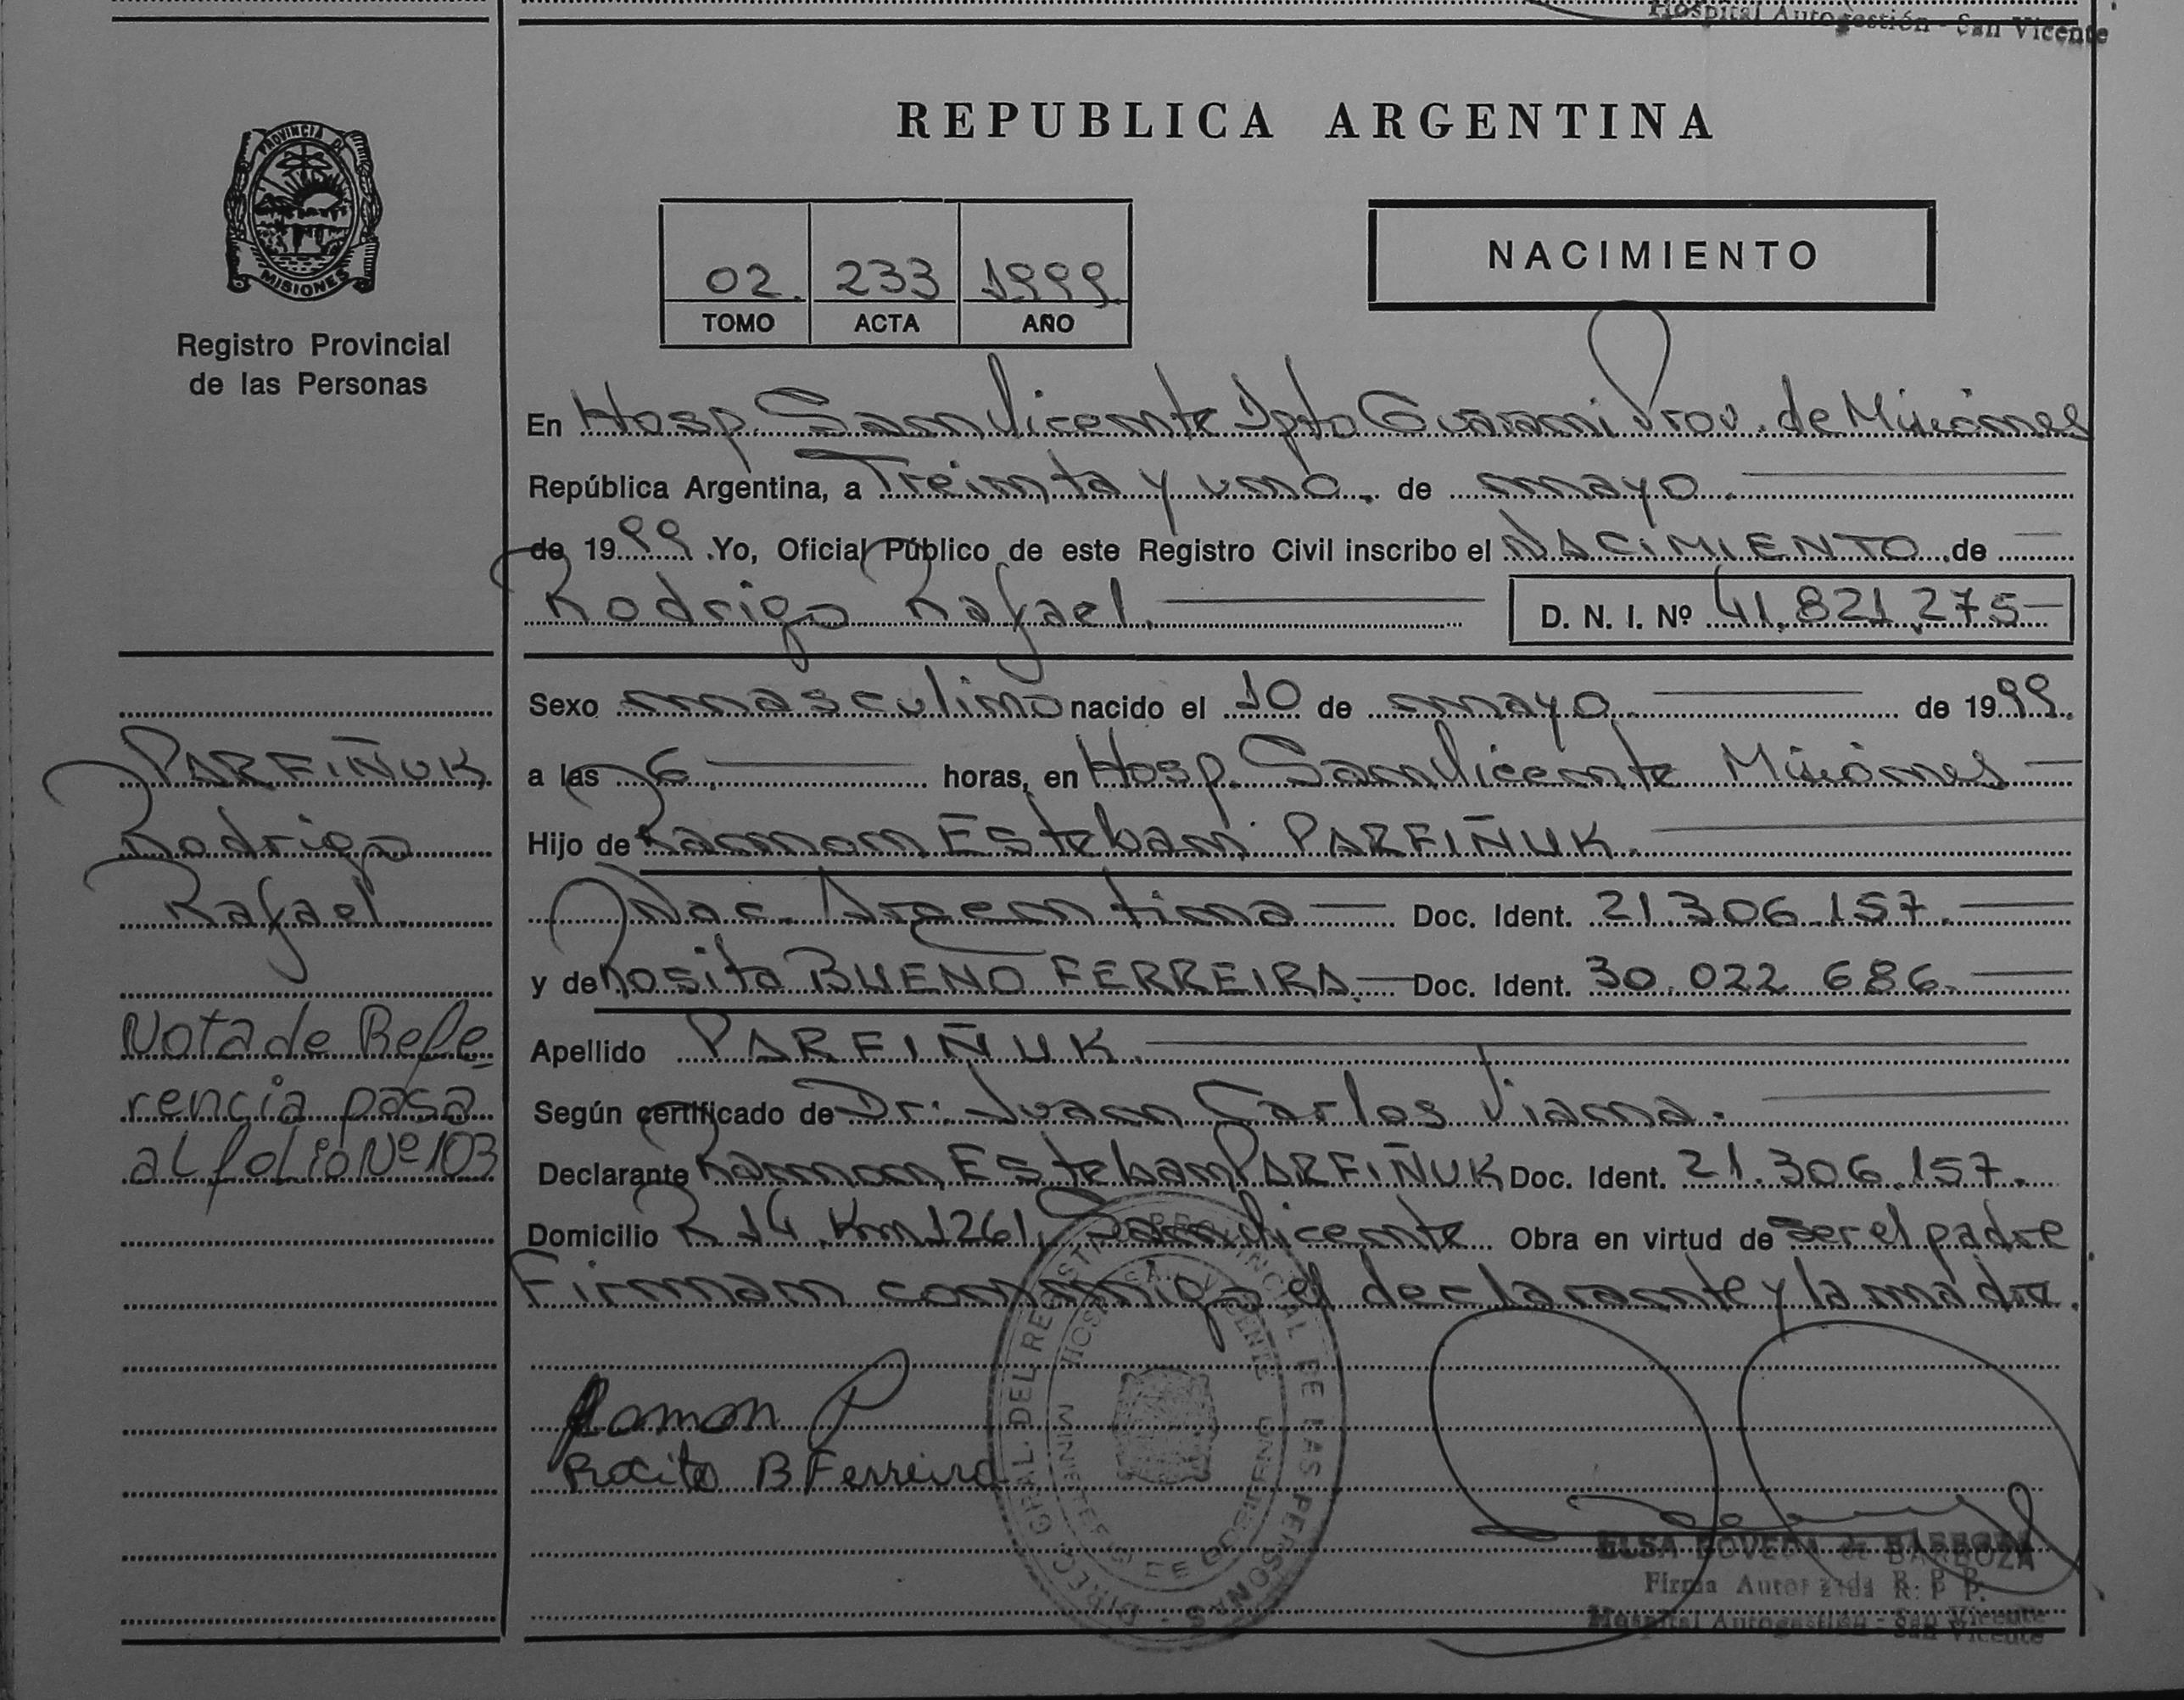 Hospital Autogestión - San Vicente
REPUBLICA ARGENTINA
PROVINCIA DE
MISIONES
Registro Provincial
de las Personas
02. 233 1999
TOMO ACTA AÑO
NACIMIENTO
En Hosp. San Vicente Dpto Guarani Prov. de Misiones
República Argentina, a Treinta y uno. de mayo.
de 1999. Yo, Oficial Público de este Registro Civil inscribo el NACIMIENTO de
Rodrigo Rafael. D. N. I. Nº 41.821.275
Sexo masculino nacido el 10 de mayo. de 1999.
a las 6 horas, en Hosp. San Vicente Misiones
Hijo de Ramon Esteban PARFIÑUK.
Nac. Argentina Doc. Ident. 21.306.157.
y de Rosita BUENO FERREIRA. Doc. Ident. 30.022 686.
Apellido PARFIÑUK.
Según certificado de Dr: Juan Carlos Viana.
Declarante Ramon Esteban PARFIÑUK Doc. Ident. 21.306.157.
Domicilio R 14 Km 1261, San Vicente Obra en virtud de ser el padre
Firman conmigo el declarante y la madre.
PARFIÑUK
Rodrigo
Rafael.
Nota de Refe-
rencia pasa
al folio Nº 103
Ramon P
Rocito B Ferreira
DIREC. GRAL. DEL REGISTRO PROVINCIAL DE LAS PERSONAS
HOSP. SAN VICENTE
ELSA de BARBOZA
Firma Autorizada R. P. P.
Hospital Autogestión - San Vicente